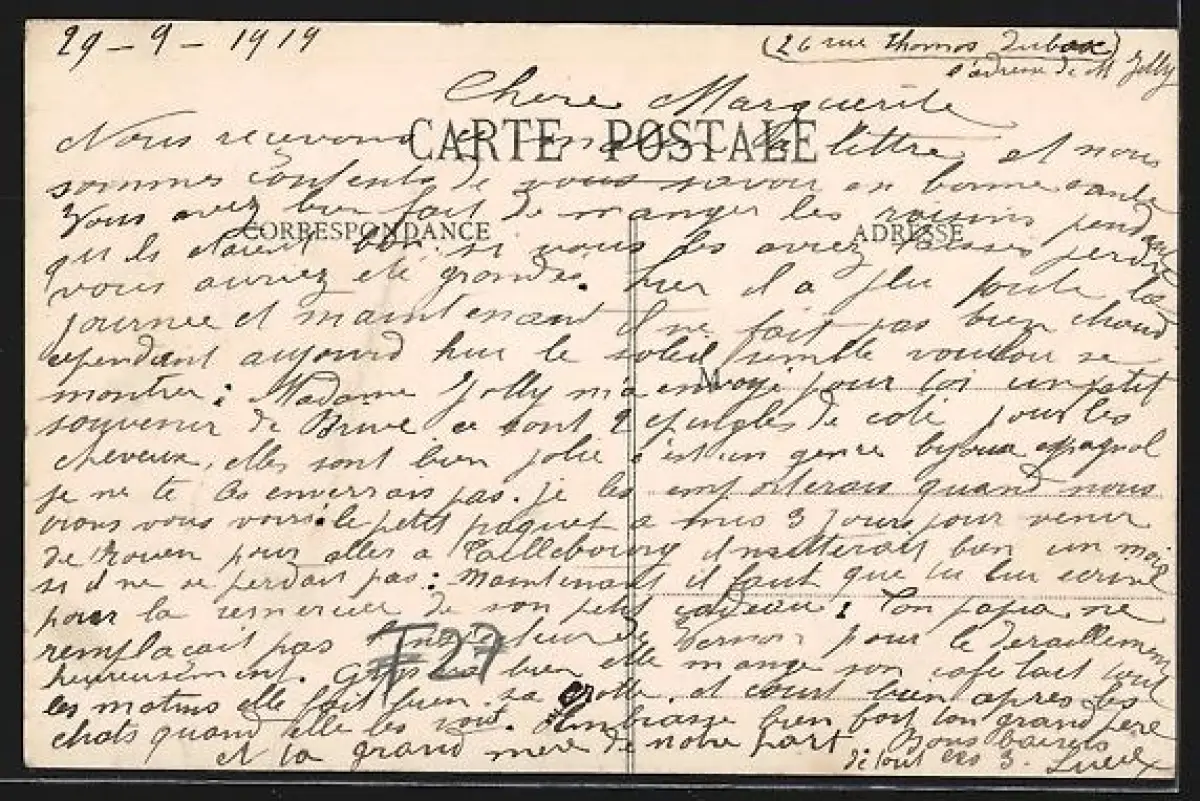 29 - 9 - 1919
(26 rue Thomas Dubosc)
l'adresse de M Jolly
Chere Marguerite
CARTE POSTALE
Nous recevons ce matin ta lettre, et nous
sommes contents de vous savoir en bonne sante
Vous avez bien fait de manger les raisins pendant
CORRESPONDANCE
ADRESSE
qu'ils etaient bon si vous les aviez laissés perdre
vous auriez eté grondé. hier il a plu toute la
journee et maintenant il ne fait pas bien chaud
cependant aujourd hui le soleil semble vouloir se
M
montrer: Madame Jolly m'a envoyé pour toi un petit
souvenir de Brive ce sont 2 epingles de coté pour les
cheveux, elles sont bien jolie c'est un genre bijoux espagnol
je ne te les enverrais pas. je les emporterais quand nous
irons vous voir: le petit paquet a mis 3 jours pour venir
de Rouen pour aller a Taillebourg il mettrait bien un mois
si il ne se perdait pas: Maintenant il faut que tu lui ecrive
pour la remercier de son petit cadeau: Ton papa ne
remplacait pas Vernon pour le deraillement
heureusement. va bien elle mange son cafe lait tout
F27
les matins elle fait bien sa crotte et court bien apres les
chats quand elle les voit. Embrasse bien fort ton grand pere
et ta grand mere de notre part Bons baisers
de tout les 3.